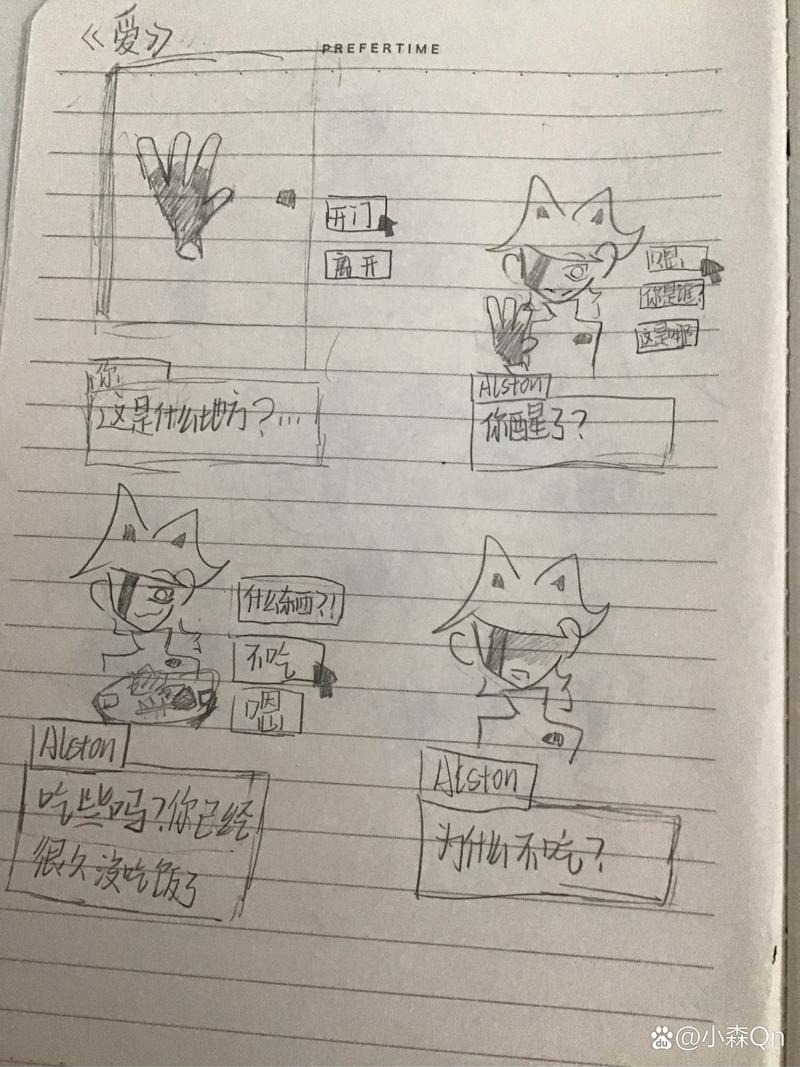 《爱》
PREFERTIME
开门
离开
你
这是什么地方？...
嗯
你是谁
这是哪
Alston
你醒了？
什么东西？！
不吃
嗯
Alston
吃些吗？你已经
很久没吃饭了
Alston
为什么不吃？
@小森Qn